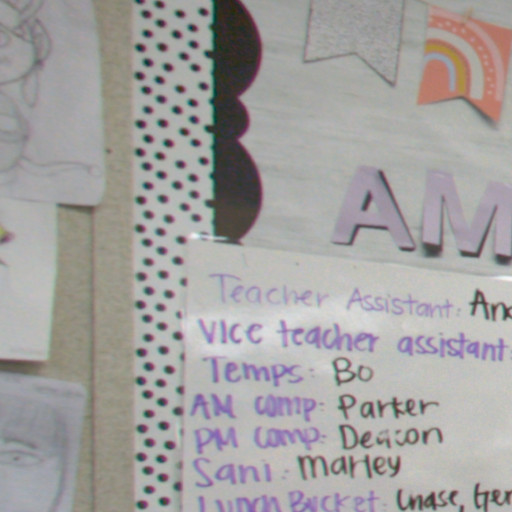 AM
Teacher Assistant: And
Vice teacher assistant:
Temps: Bo
AM comp: Parker
PM comp: Deacon
Sani: Marley
Lunch Bucket: Chase,